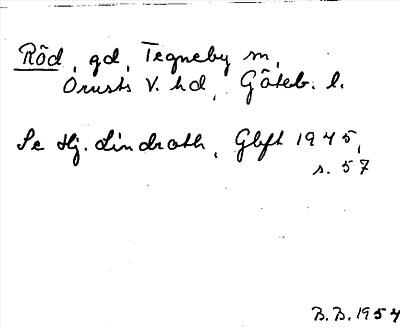 Röd, gd, Tegneby sn,
Orusts V. hd, Göteb. l.
Se Hj. Lindroth, Gbft 1945,
s. 57
B.B. 1954